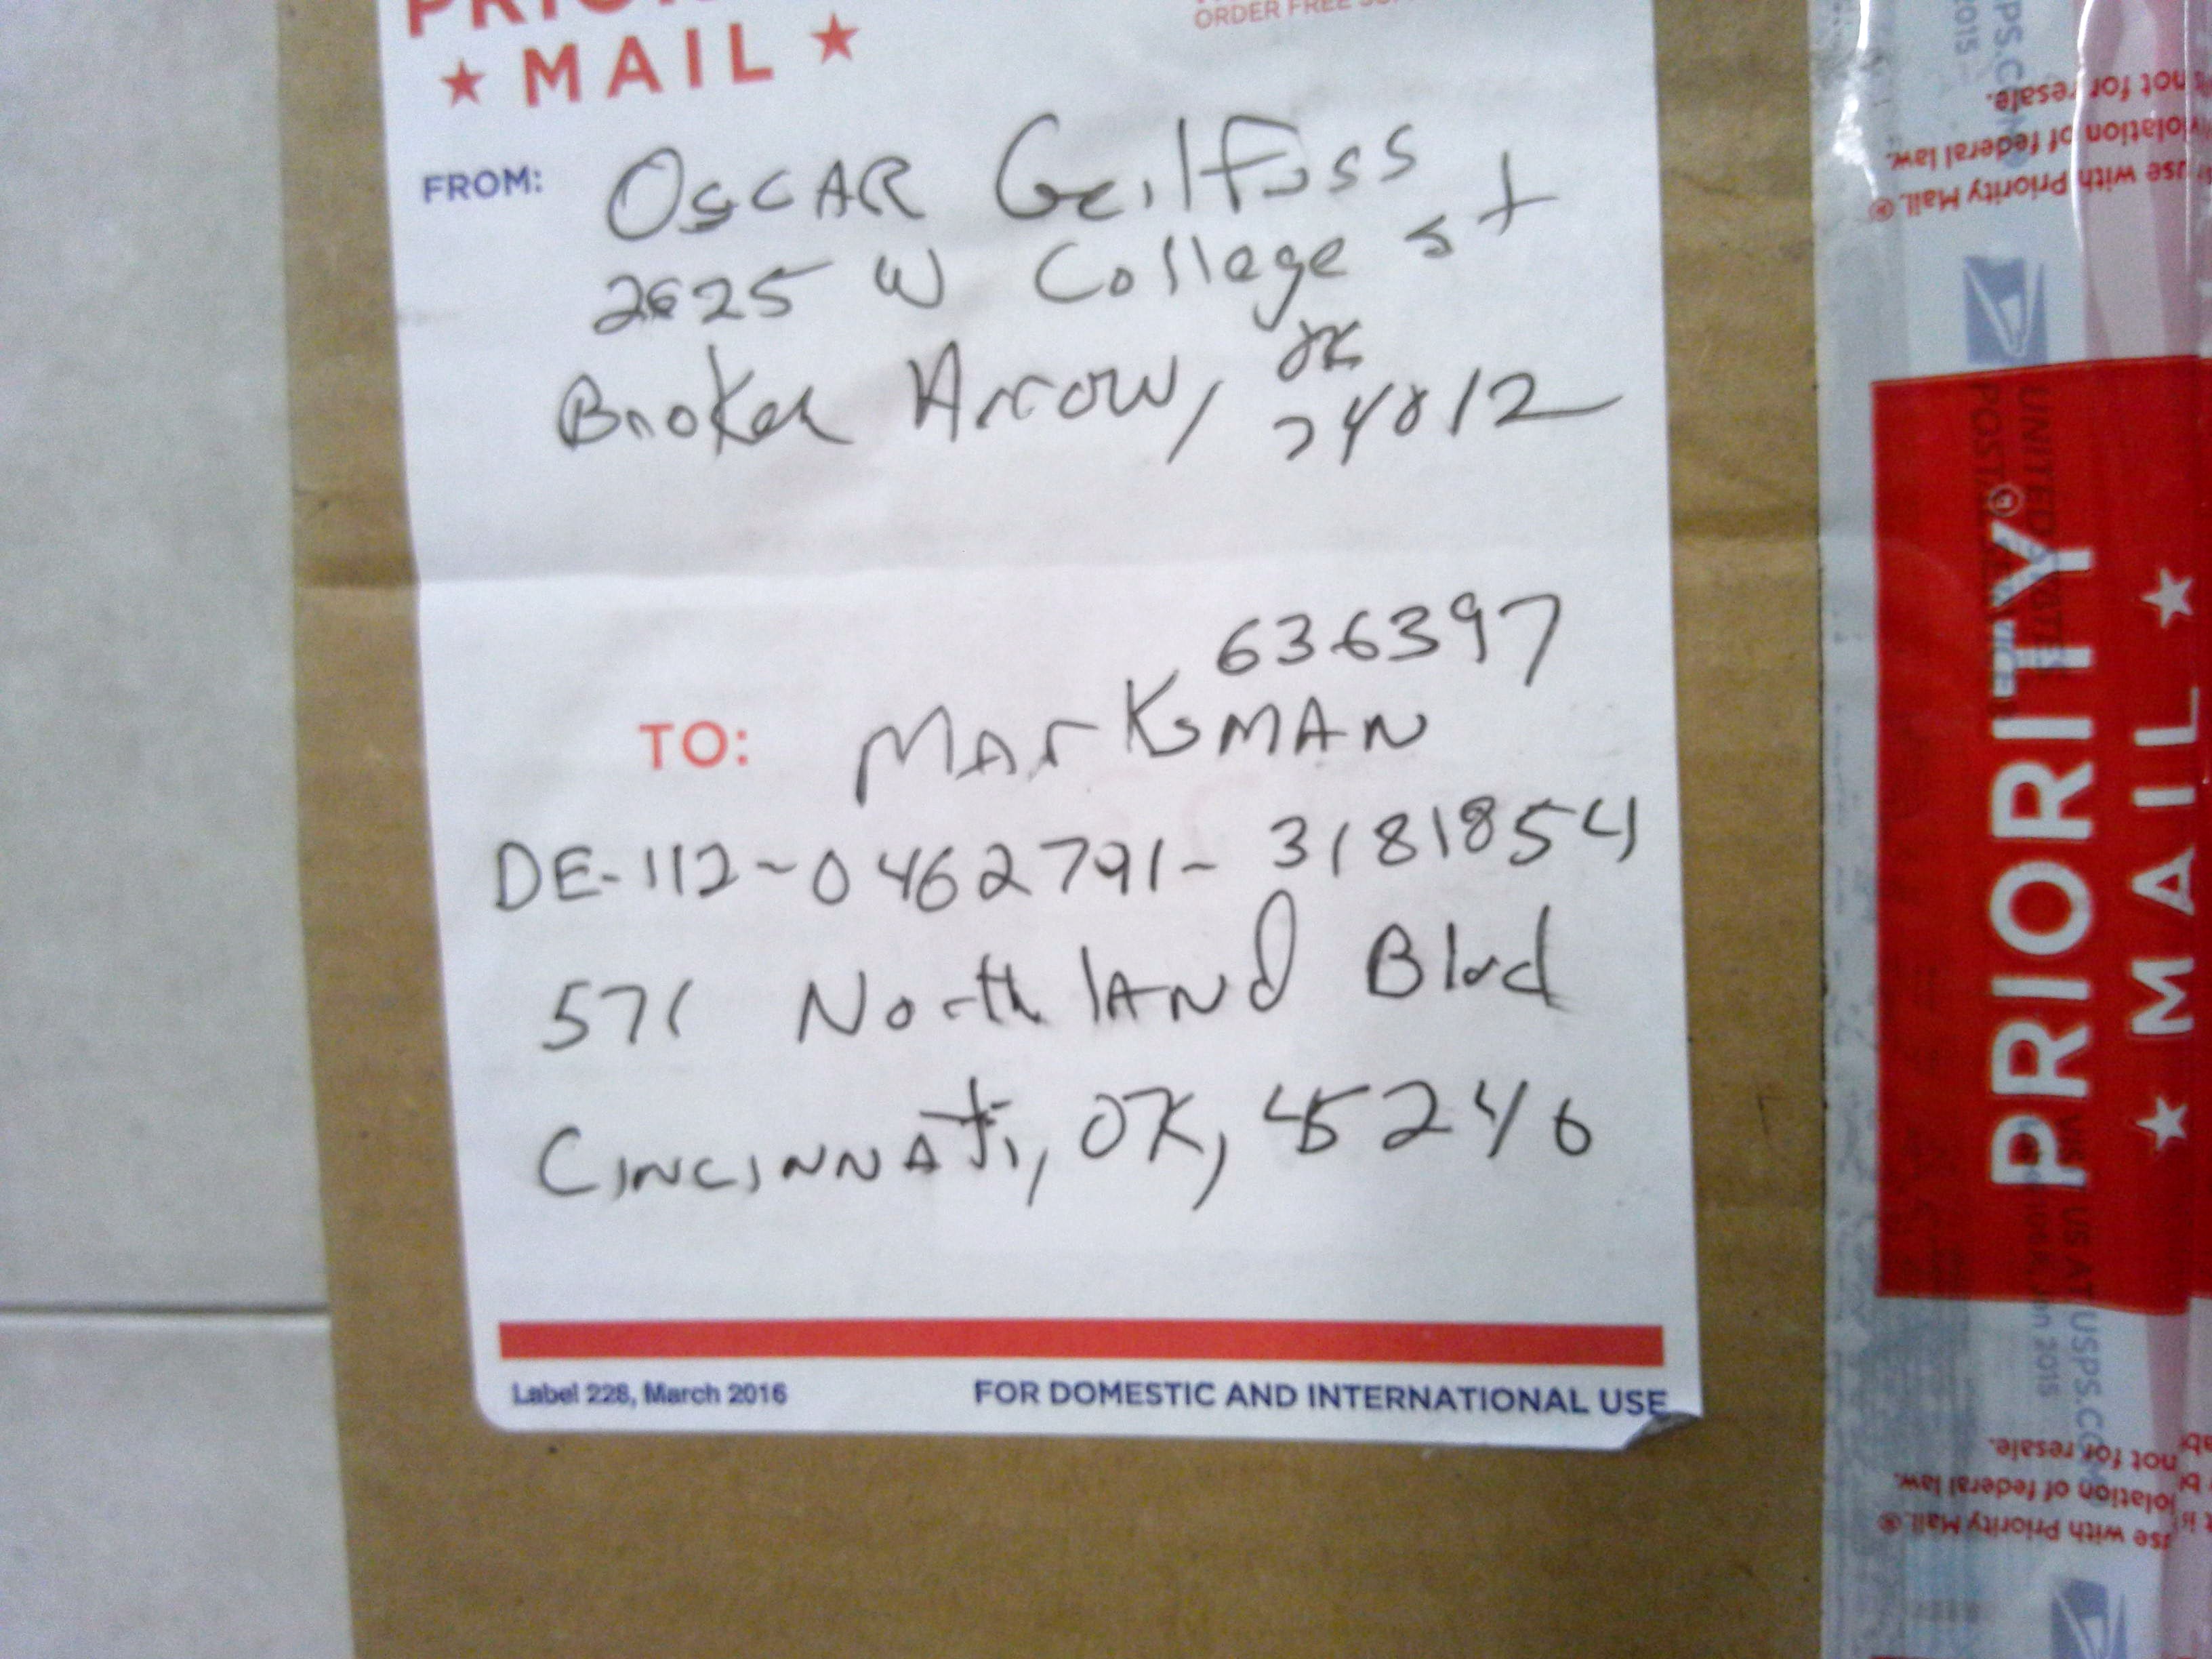 PRIOR
★ MAIL ★
ORDER FREE
FROM:
OSCAR Geilfuss
2625 W College st
Broken Arrow, OK
74012
636397
TO: MARKSMAN
DE-112-0462791-3181854
571 Northland Blvd
CINCINNATI, OK, 45246
Label 228, March 2016
FOR DOMESTIC AND INTERNATIONAL USE
PRIORITY®
★ MAIL ★
UNITED STATES
VISIT US AT USPS.COM
use with Priority Mail.®
violation of federal law.
not for resale.
use with Priority Mail.®
violation of federal law.
not for resale.